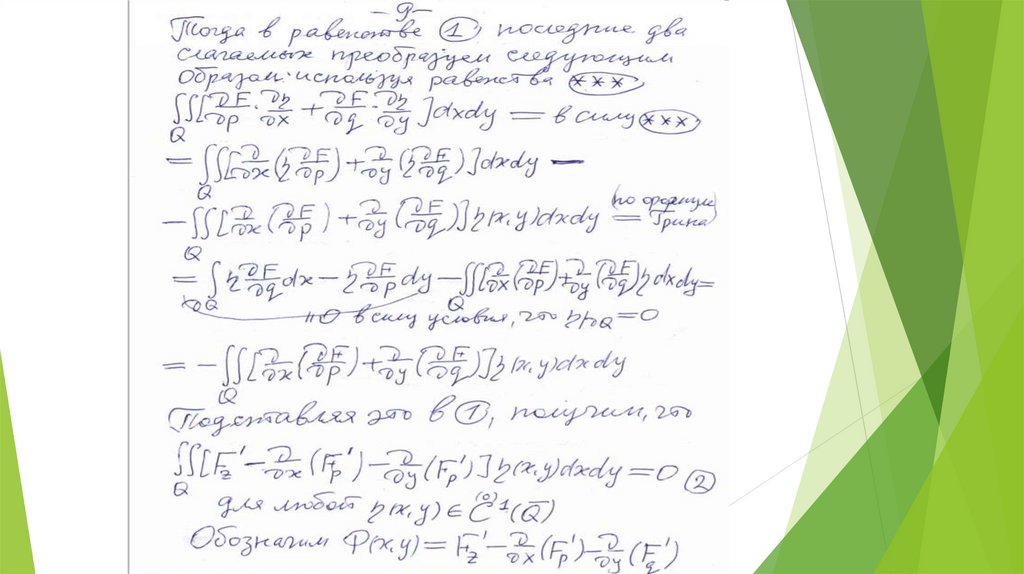 – 9 –
Тогда в равенстве ①, последние два
слагаемых преобразуем следующим
образом: используя равенства (***)
∬_Q [∂F/∂p · ∂η/∂x + ∂F/∂q · ∂η/∂y] dxdy = в силу (***)
= ∬_Q [∂/∂x (η ∂F/∂p) + ∂/∂y (η ∂F/∂q)] dxdy –
– ∬_Q [∂/∂x (∂F/∂p) + ∂/∂y (∂F/∂q)] η(x,y) dxdy = (по формуле Грина)
= ∫_∂Q η ∂F/∂q dx – η ∂F/∂p dy – ∬_Q [∂/∂x (∂F/∂p) + ∂/∂y (∂F/∂q)] η dxdy =
"0 в силу условия, что η|_ΓQ = 0
= – ∬_Q [∂/∂x (∂F/∂p) + ∂/∂y (∂F/∂q)] η(x,y) dxdy
Подставляя это в ①, получим, что
∬_Q [F'_z – ∂/∂x (F'_p) – ∂/∂y (F'_p)] η(x,y) dxdy = 0 ②
для любой η(x,y) ∈ C^(0)1 (Q̄)
Обозначим Φ(x,y) = F'_z – ∂/∂x (F'_p) – ∂/∂y (F'_q)